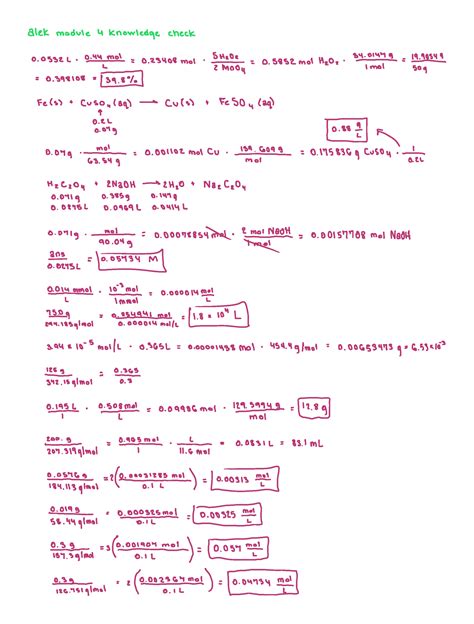 alek module 4 knowledge check
0.0532 L · 0.44 mol / L = 0.23408 mol · 5H₂O₂ / 2 MnO₄ = 0.5852 mol H₂O₂ · 34.0147 g / 1 mol = 19.9054 g / 50g
= 0.398108 = 39.8%
Fe(s) + CuSO₄(aq) → Cu(s) + FeSO₄(aq)
↑
0.2L
0.07g
0.88 g/L
0.07g · mol / 63.54 g = 0.001102 mol Cu · 159.609 g / mol = 0.175836 g CuSO₄ · 1 / 0.2L
H₂C₂O₄ + 2NaOH → 2H₂O + Na₂C₂O₄
0.071g 0.385g 0.147g
0.0275L 0.0969L 0.0414L
0.071g · mol / 90.04 g = 0.00078854 mol · 2 mol NaOH / 1 mol = 0.00157708 mol NaOH
ans / 0.0275L = 0.05734 M
0.014 mmol / L · 10⁻³ mol / 1 mmol = 0.000014 mol / L
73.0g / 294.185 g/mol = / 0.000014 mol/L = 1.8 × 10⁴ L
mol/L · 0.365L = 0.00001438 mol · = 0.00653473 g = 6.53×10⁻³
/ 342.15 g/mol = 0.365 / 0.3
0.195 L / 1 · 0.508 mol / L = 0.09906 mol · 129.5994 g / mol = 12.8 g
200. g / 207.519 g/mol = 0.965 mol / 1 · L / 11.6 mol = 0.0831 L = 83.1 mL
0.0576 g / 184.113 g/mol = 2(0.00031285 mol / 0.1 L) = 0.00313 mol/L
0.019 g / 58.44 g/mol = 0.000325 mol / 0.1 L = 0.00325 mol/L
0.3 g / 157.3 g/mol = 3(0.001904 mol / 0.1 L) = 0.057 mol/L
0.3g / 126.751 g/mol = 2(0.002367 mol / 0.1 L) = 0.04734 mol/L